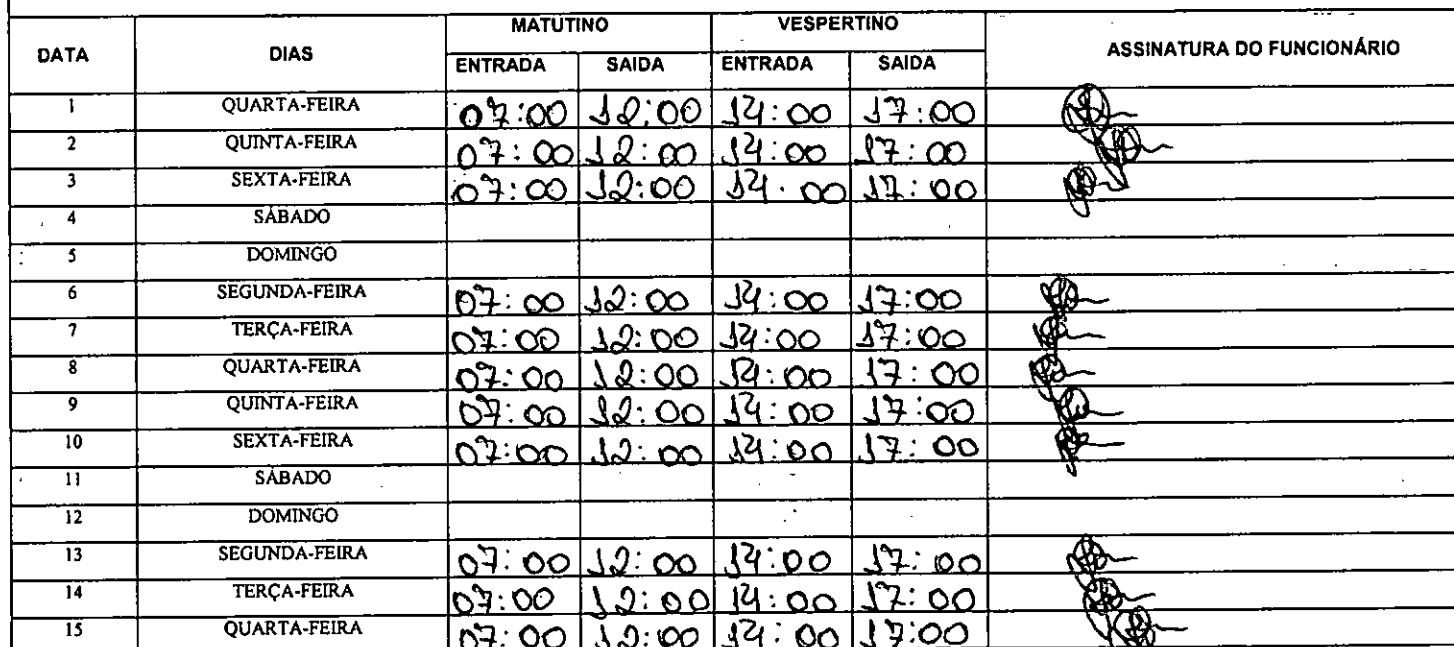 MATUTINO VESPERTINO
DATA DIAS ASSINATURA DO FUNCIONÁRIO
ENTRADA SAIDA ENTRADA SAIDA
1 QUARTA-FEIRA 07:00 12:00 14:00 17:00
2 QUINTA-FEIRA 07:00 12:00 14:00 17:00
3 SEXTA-FEIRA 07:00 12:00 14:00 17:00
4 SÁBADO
5 DOMINGO
6 SEGUNDA-FEIRA 07:00 12:00 14:00 17:00
7 TERÇA-FEIRA 07:00 12:00 14:00 17:00
8 QUARTA-FEIRA 07:00 12:00 14:00 17:00
9 QUINTA-FEIRA 07:00 12:00 14:00 17:00
10 SEXTA-FEIRA 07:00 12:00 14:00 17:00
11 SÁBADO
12 DOMINGO
13 SEGUNDA-FEIRA 07:00 12:00 14:00 17:00
14 TERÇA-FEIRA 07:00 12:00 14:00 17:00
15 QUARTA-FEIRA 07:00 12:00 14:00 17:00